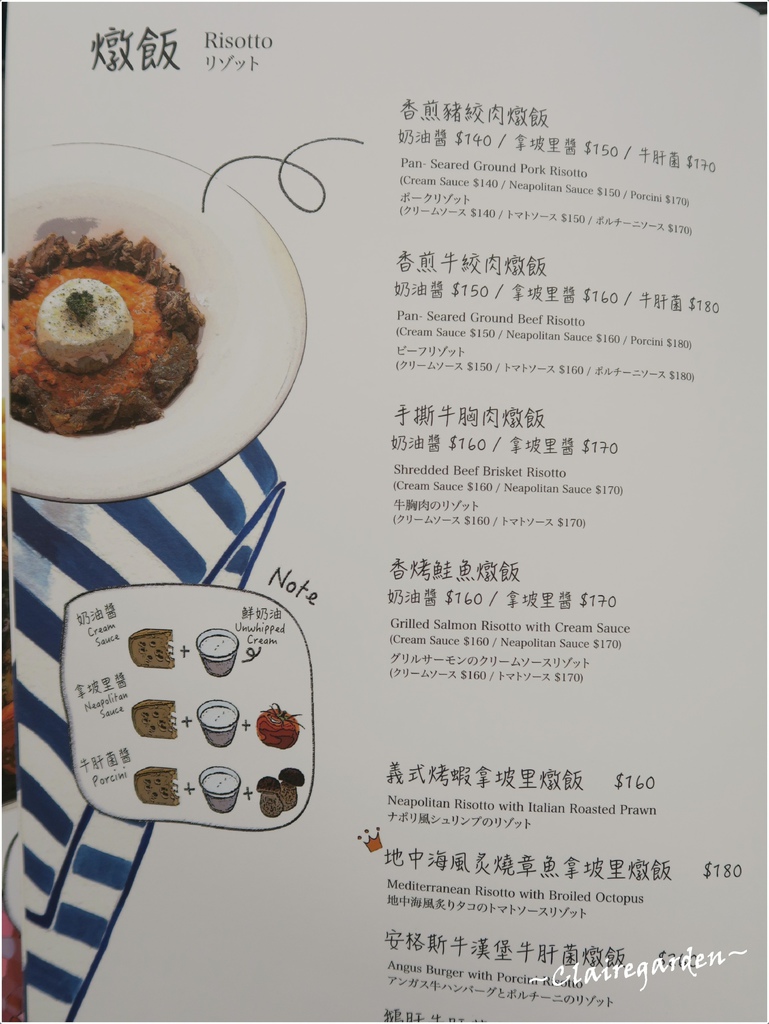 燉飯 Risotto
リゾット
香煎豬絞肉燉飯
奶油醬 $140 / 拿坡里醬 $150 / 牛肝菌 $170
Pan- Seared Ground Pork Risotto
(Cream Sauce $140 / Neapolitan Sauce $150 / Porcini $170)
ポークリゾット
(クリームソース $140 / トマトソース $150 / ポルチーニソース $170)
香煎牛絞肉燉飯
奶油醬 $150 / 拿坡里醬 $160 / 牛肝菌 $180
Pan- Seared Ground Beef Risotto
(Cream Sauce $150 / Neapolitan Sauce $160 / Porcini $180)
ビーフリゾット
(クリームソース $150 / トマトソース $160 / ポルチーニソース $180)
手撕牛胸肉燉飯
奶油醬 $160 / 拿坡里醬 $170
Shredded Beef Brisket Risotto
(Cream Sauce $160 / Neapolitan Sauce $170)
牛胸肉のリゾット
(クリームソース $160 / トマトソース $170)
香烤鮭魚燉飯
奶油醬 $160 / 拿坡里醬 $170
Grilled Salmon Risotto with Cream Sauce
(Cream Sauce $160 / Neapolitan Sauce $170)
グリルサーモンのクリームソースリゾット
(クリームソース $160 / トマトソース $170)
Note
奶油醬
Cream
Sauce
+
鮮奶油
Unwhipped
Cream
拿坡里醬
Neapolitan
Sauce
+ +
牛肝菌醬
Porcini
+ +
義式烤蝦拿坡里燉飯 $160
Neapolitan Risotto with Italian Roasted Prawn
ナポリ風シュリンプのリゾット
地中海風炙燒章魚拿坡里燉飯 $180
Mediterranean Risotto with Broiled Octopus
地中海風炙りタコのトマトソースリゾット
安格斯牛漢堡牛肝菌燉飯
Angus Burger with Porcini Risotto
アンガス牛ハンバーグとポルチーニのリゾット
~Clairegarden~